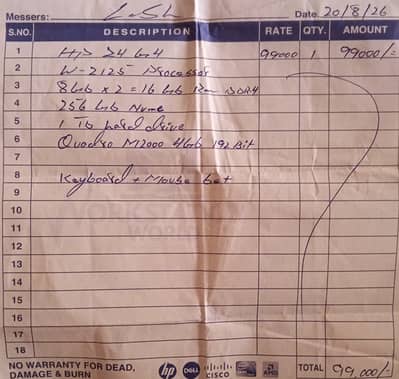 Messers: Cash Date 20/8/26
S.NO. DESCRIPTION RATE QTY. AMOUNT
1 HP Z4 G4 99000 1 99000/=
2 W-2125 Processor
3 8Gb x 2 = 16 Gb Ram DDR4
4 256 Gb Nvme
5 1 Tb hard drive
6 Quadro M2000 4Gb 192 Bit
7
8 Keyboard + Mouse
9
10
11
12
13
14
15
16
17
18
NO WARRANTY FOR DEAD, DAMAGE & BURN hp DELL CISCO TOTAL 99,000/-